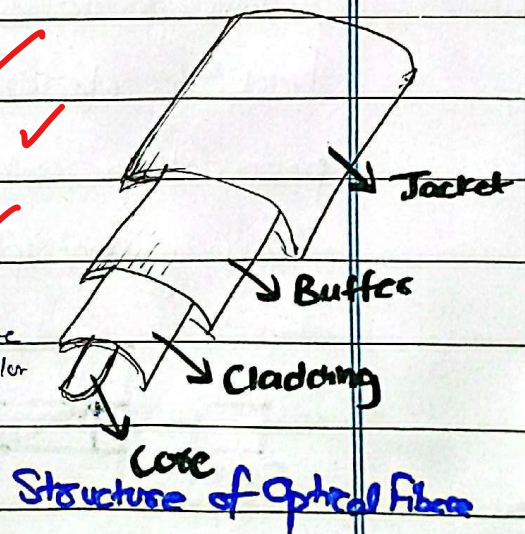 Jacket
Buffer
Cladding
Core
Structure of Optical Fiber